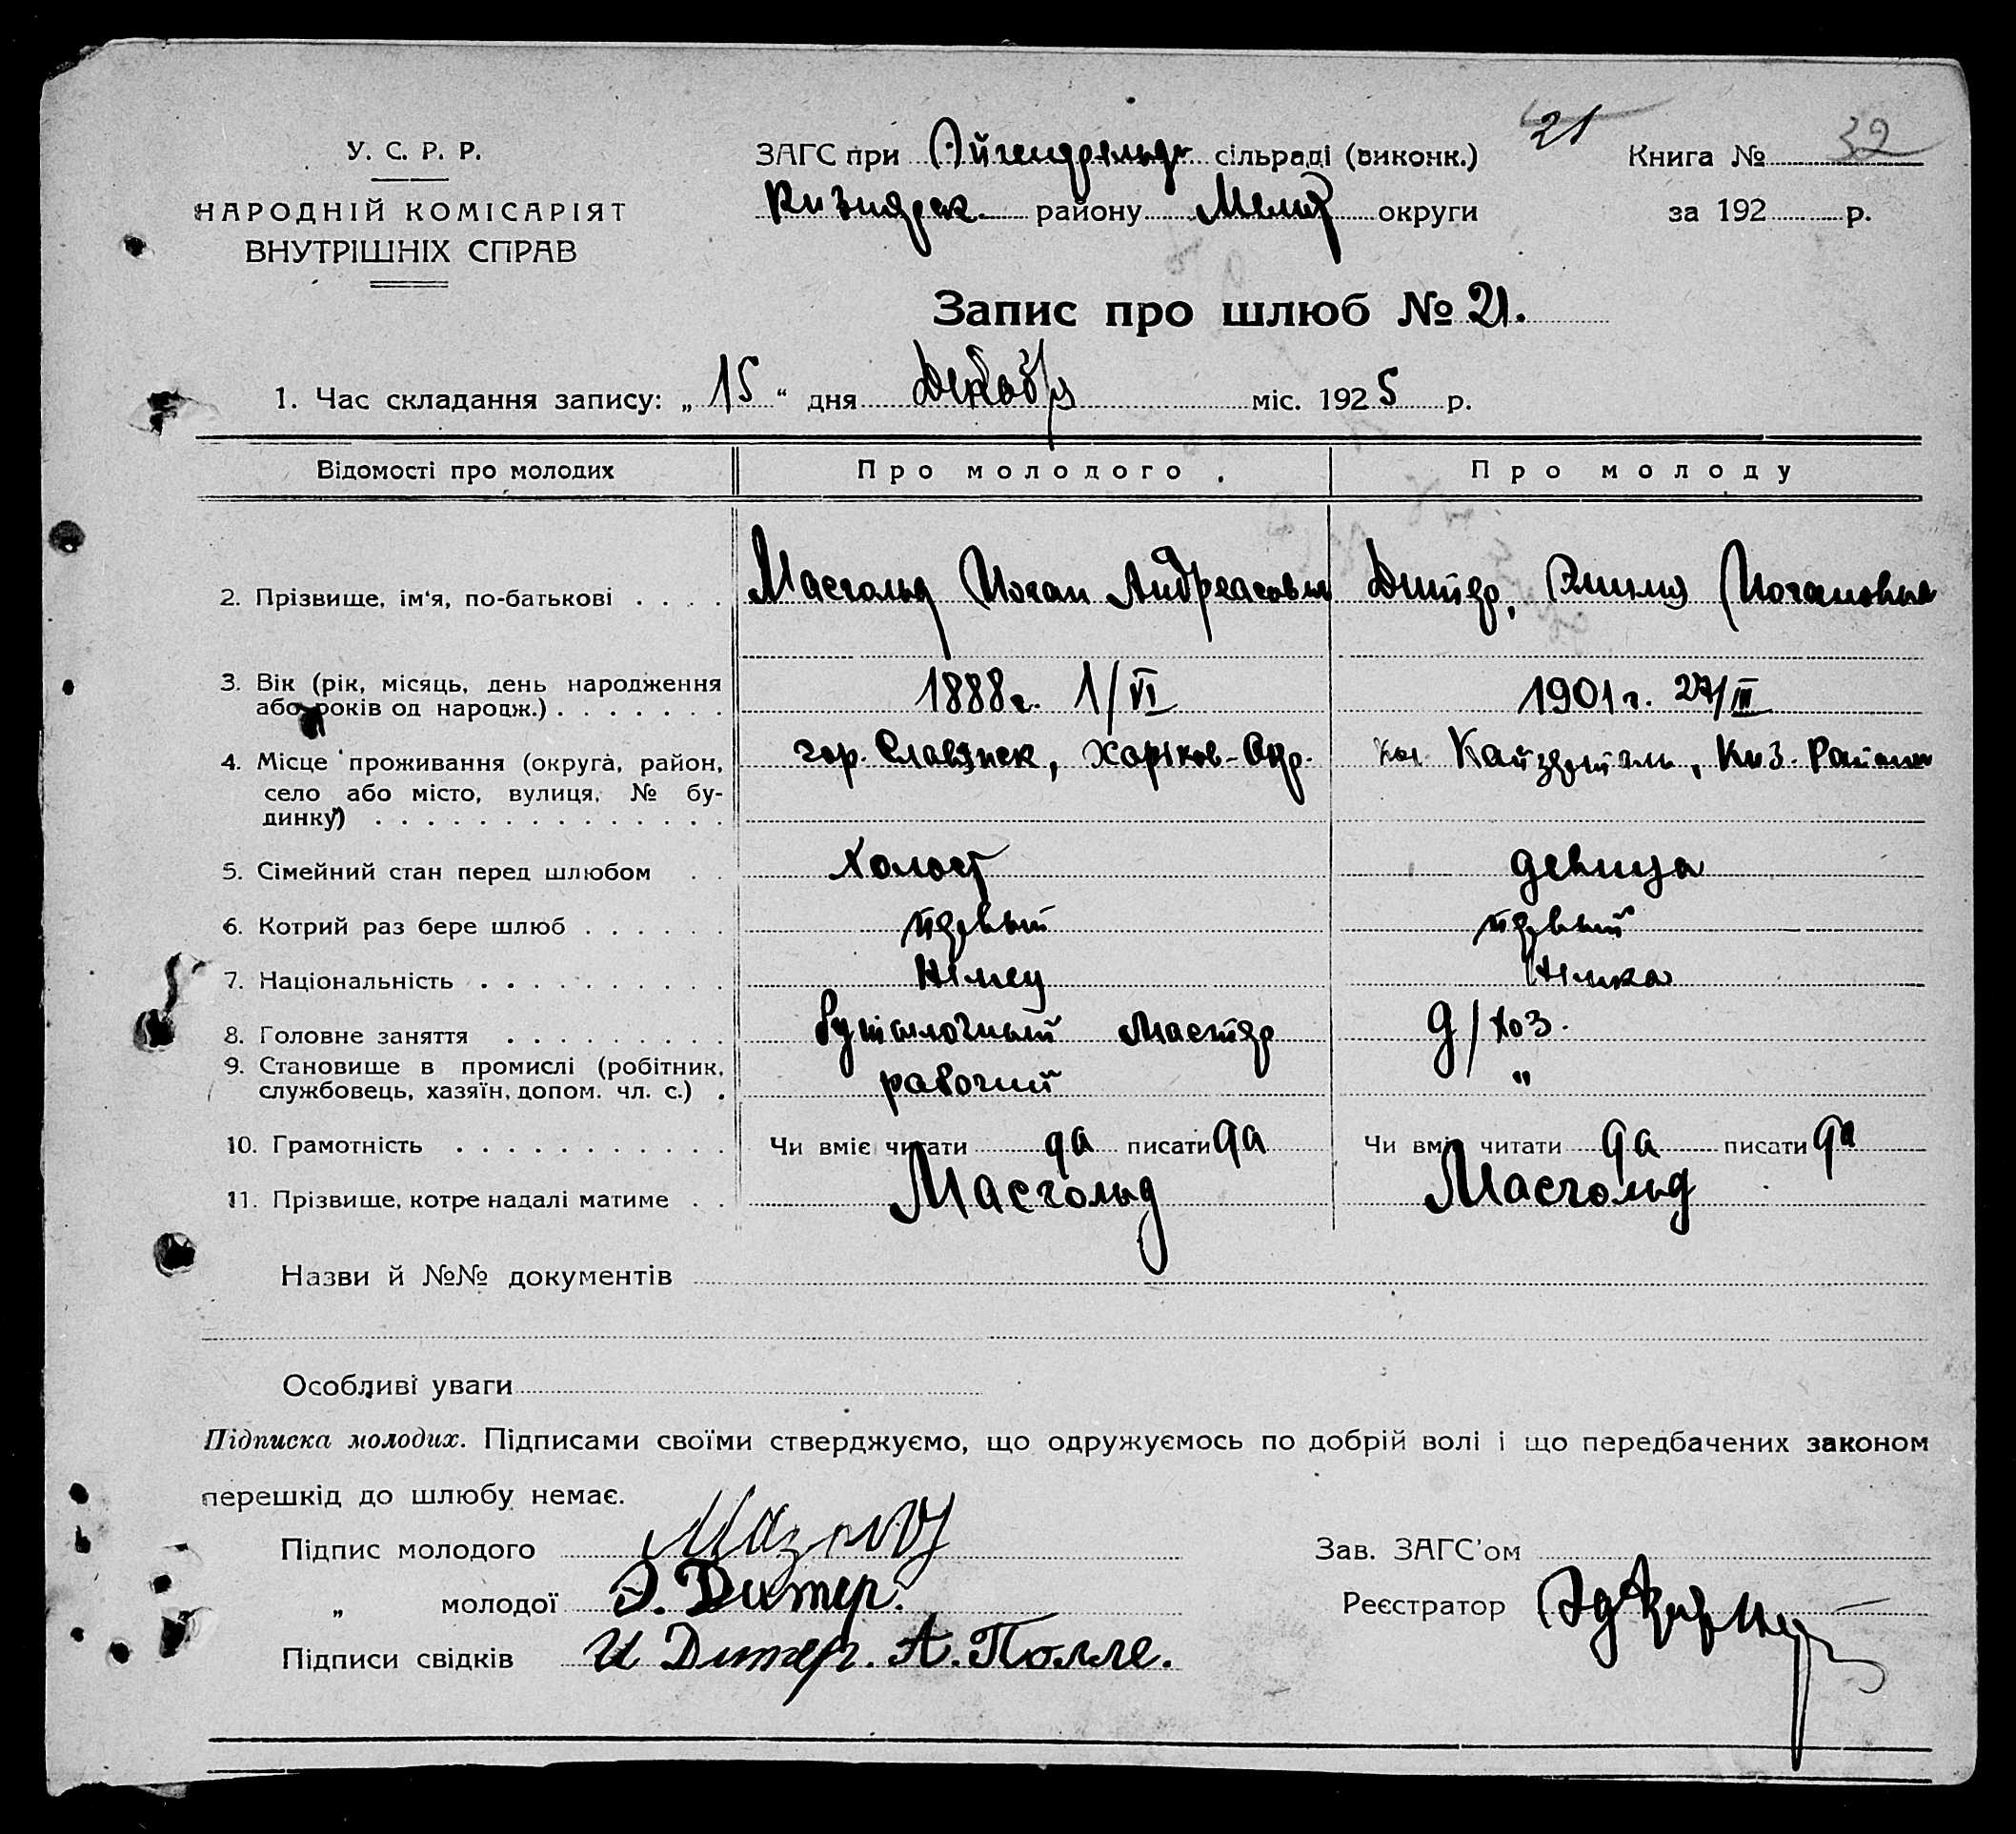 21
У. С. Р. Р.
НАРОДНІЙ КОМІСАРІЯТ
ВНУТРІШНІХ СПРАВ
ЗАГС при Эйгенфельд сільраді (виконк.)
Кизиярск. району Мелит округи
Книга № 32
за 192 р.
Запис про шлюб № 21.
1. Час складання запису: „ 15 “ дня Декабря міс. 1925 р.
Відомості про молодих Про молодого Про молоду
2. Прізвище, ім'я, по-батькові Масгольд Иоган Андреасович Дитер, Эмилия Иогановна
3. Вік (рік, місяць, день народження
або років од народж.) 1888 г. 1/VI 1901 г. 27/III
4. Місце проживання (округа, район,
село або місто, вулиця, № бу-
динку) гор. Славянск, Харіков-Окр. Кол Кайзерталь, Киз. Района
5. Сімейний стан перед шлюбом холост девица
6. Котрий раз бере шлюб первый первый
7. Національність Німец Німка
8. Головне заняття бутылочный мастер д/хоз.
9. Становище в промислі (робітник,
службовець, хазяїн, допом. чл. с.) рабочий "
10. Грамотність Чи вміє читати да писати да Чи вміє читати да писати да
11. Прізвище, котре надалі матиме Масгольд Масгольд
Назви й №№ документів
Особливі уваги
Підписка молодих. Підписами своїми стверджуємо, що одружуємось по добрій волі і що передбачених законом
перешкід до шлюбу немає.
Підпис молодого
Зав. ЗАГС'ом
„ молодої Э. Дитер.
Реєстратор
Підписи свідків И Дитер. А. Полле.